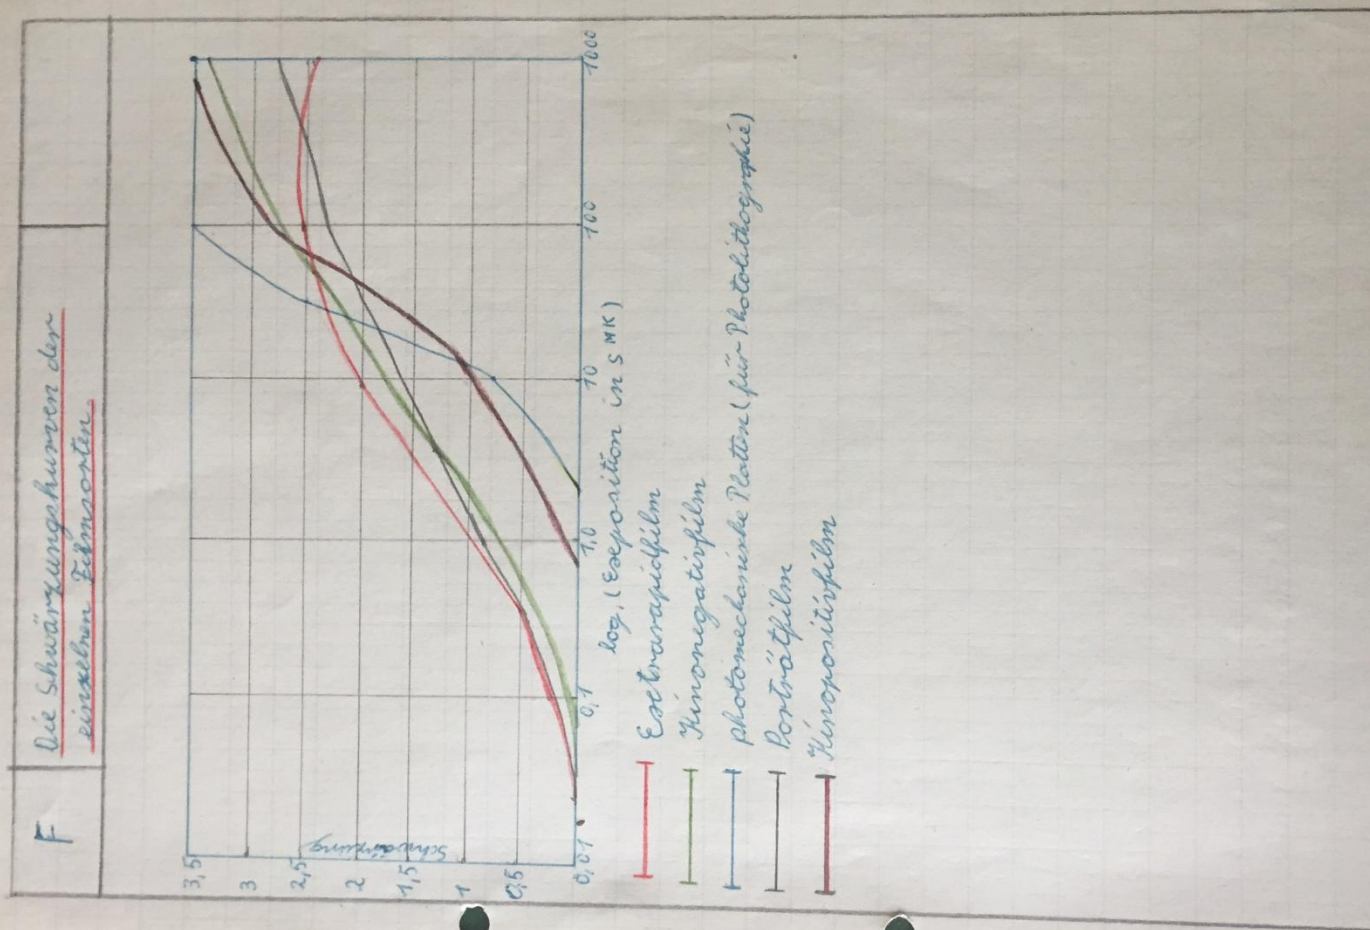 F
Die Schwärzungskurven der
einzelnen Filmsorten.
3,5
3
2,5
2
1,5
1
0,5
Schwärzung
0,01
0,1
1,0
10
100
1000
log. (Exposition in S MK)
Extrarapidfilm
Kinonegativfilm
photomechanische Platten (für Photolithographie)
Porträtfilm
Kinopositivfilm